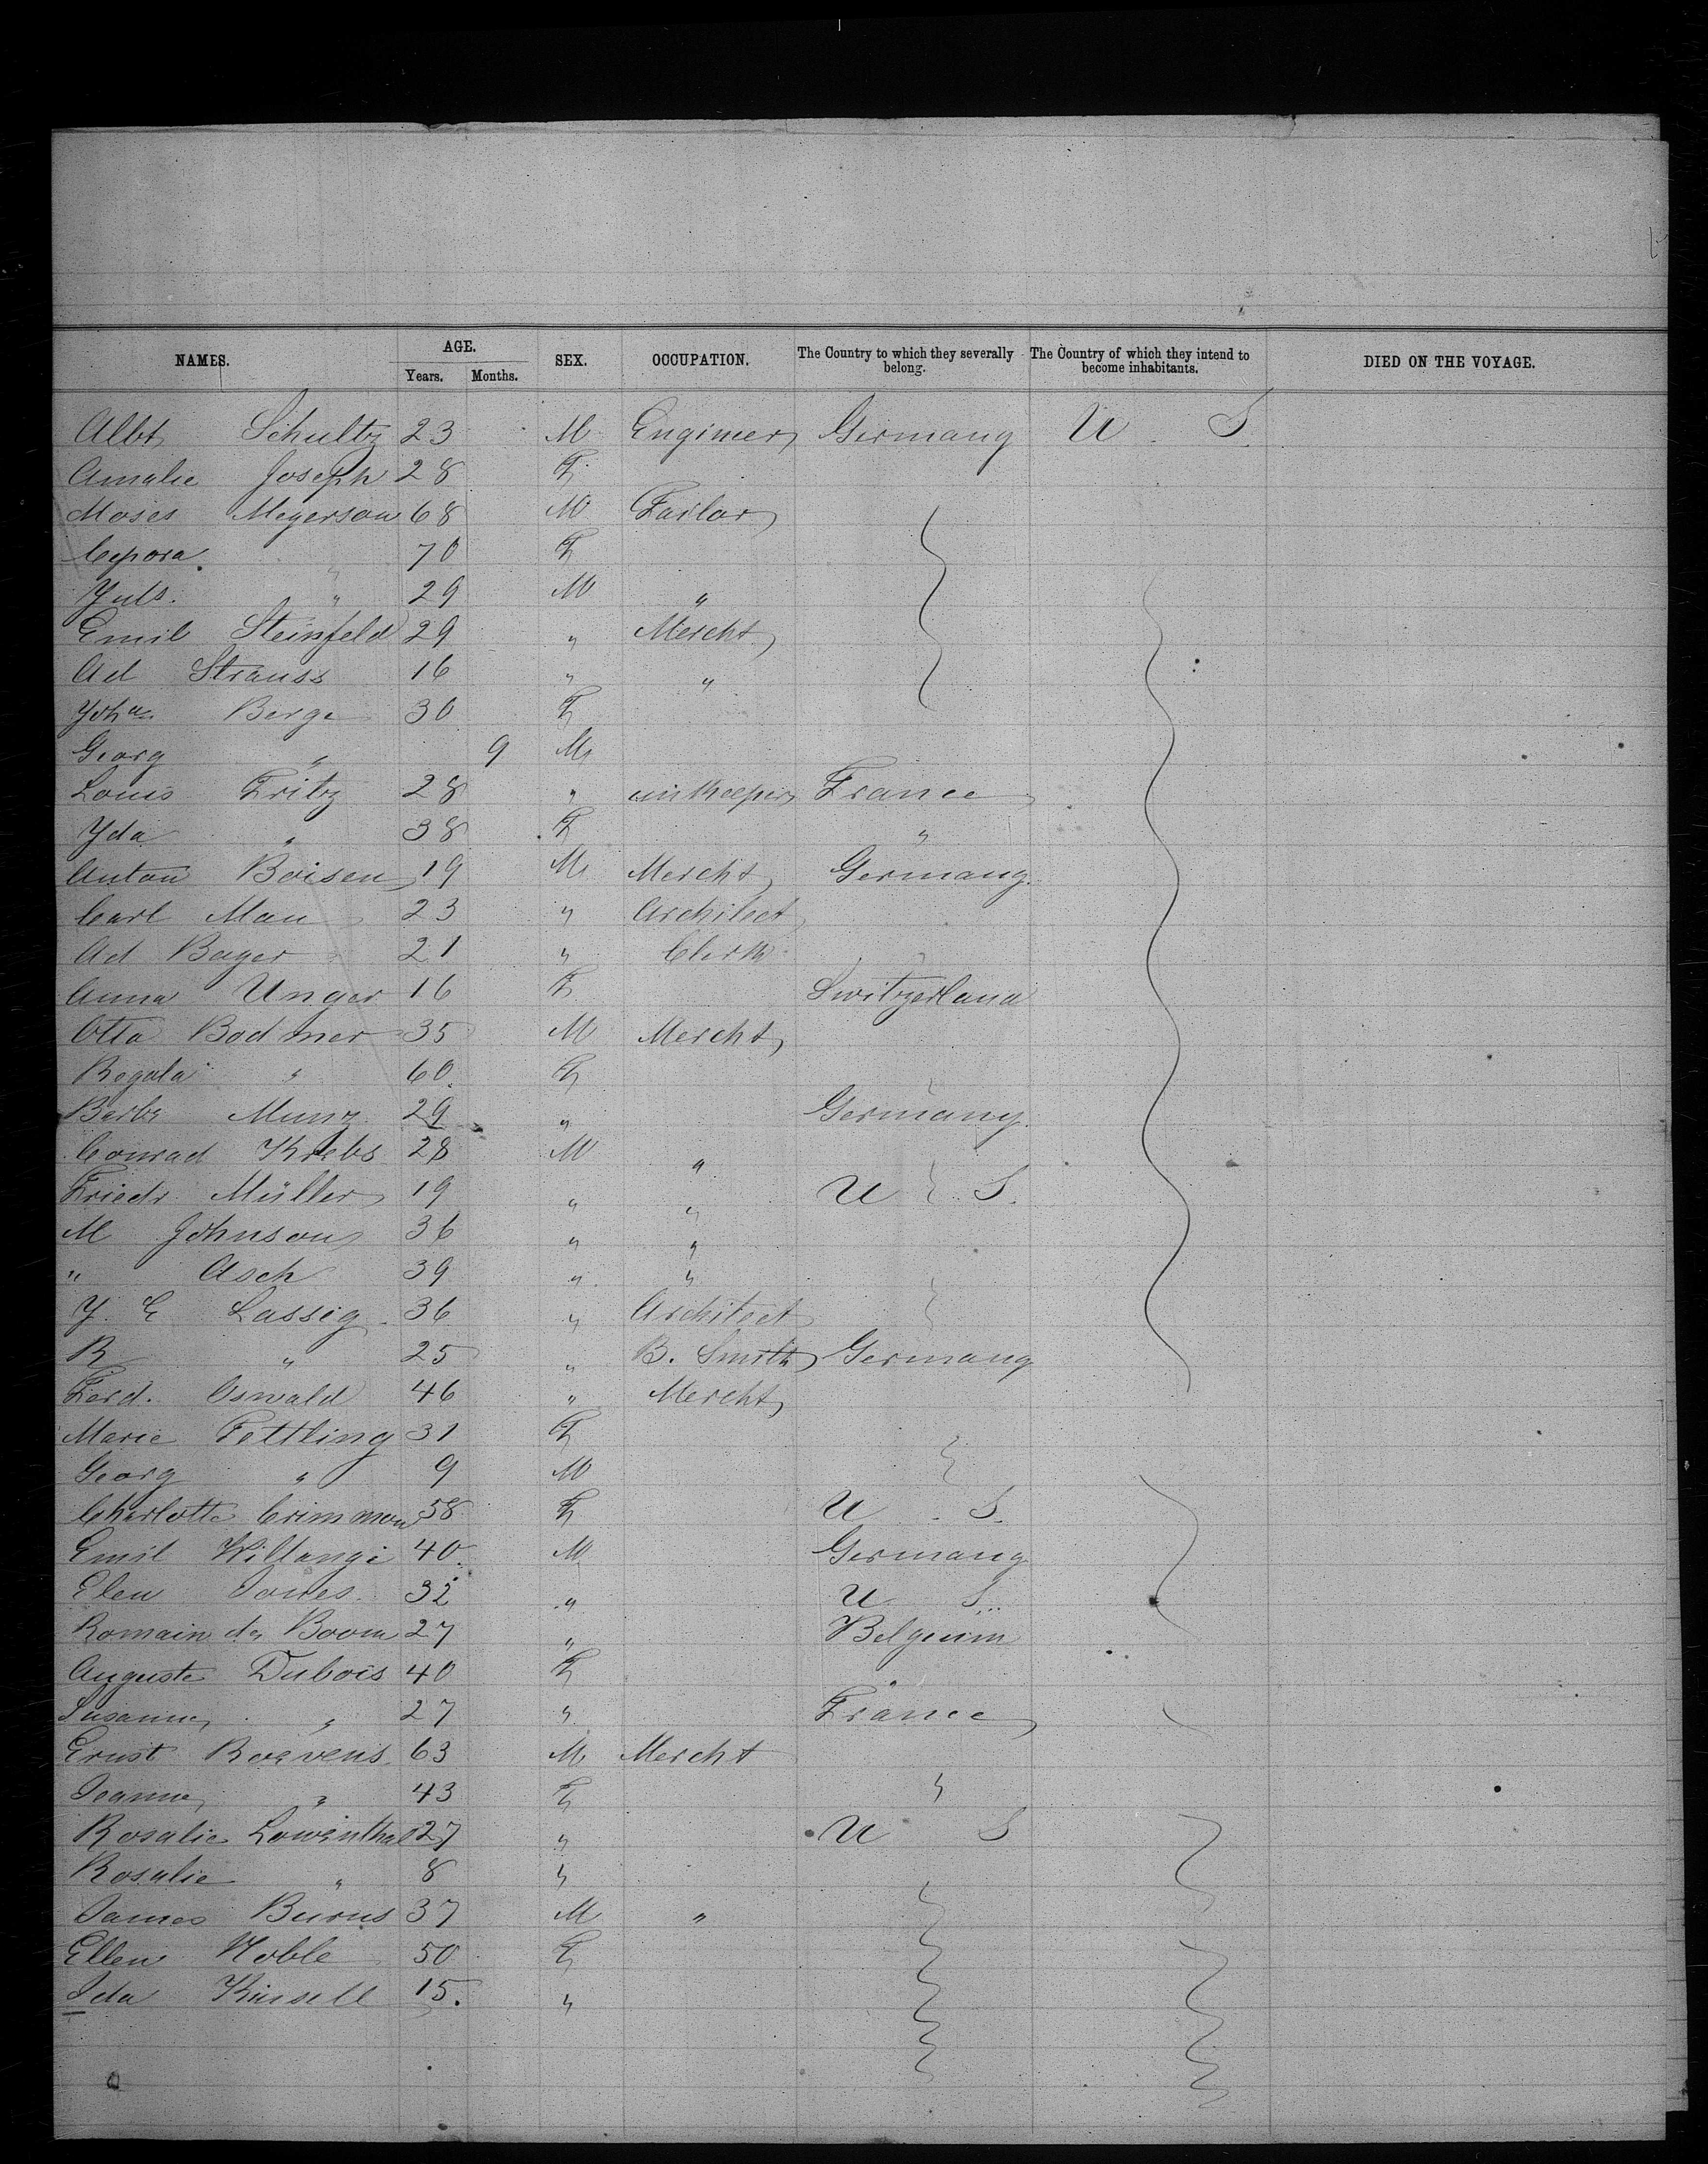 NAMES. AGE. SEX. OCCUPATION. The Country to which they severally belong. The Country of which they intend to become inhabitants. DIED ON THE VOYAGE.
Years. Months.
Albt Schultz 23 M Engineer Germany U S
Amalie Joseph 28 F
Moses Meyerson 68 M Tailor
Cepora " 70 F
Juls. " 29 M "
Emil Steinfeld 29 " Mercht
Ad Strauss 16 " "
Joha Berge 30 F
Georg " 9 M
Louis Fritz 28 " innkeeper France
Ida " 38 F "
Anton Boisen 19 M Mercht Germany
Carl Mau 23 " Architect
Ad Bayer 21 " Clerk "
Anna Unger 16 F Switzerland
Otto Bodmer 35 M Mercht
Regula " 60 F
Barba Munz 29 " Germany
Conrad Krebs 28 M "
Friedr Müller 19 " " U S
M Johnson 36 " "
" Asch 39 " "
J. E Lassig 36 " Architect
R " 25 " B. Smith Germany
Ferd. Oswald 46 " Mercht
Marie Fettling 31 F
Georg " 9 M
Charlotte Crimmon 58 F U S.
Emil Willangi 40 M Germany
Elen Jones 32 " U S
Romain de Boom 27 " Belgium
Auguste Dubois 40 F "
Susanne " 27 " France
Ernst Roevens 63 M Mercht
Jeanne " 43 F "
Rosalie Lowenthal 27 " U S
Rosalie " 8 "
James Burns 37 M "
Ellen Noble 50 F
Ida Kinsell 15. "